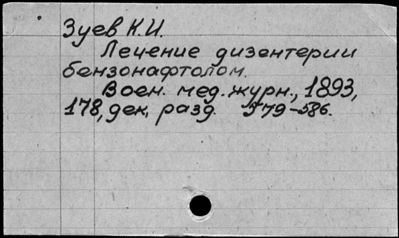 Зуев К.И.
Лечение дизентерии
бензонафтолом.
Воен. мед. журн., 1893,
178, дек, разд. 579-586.